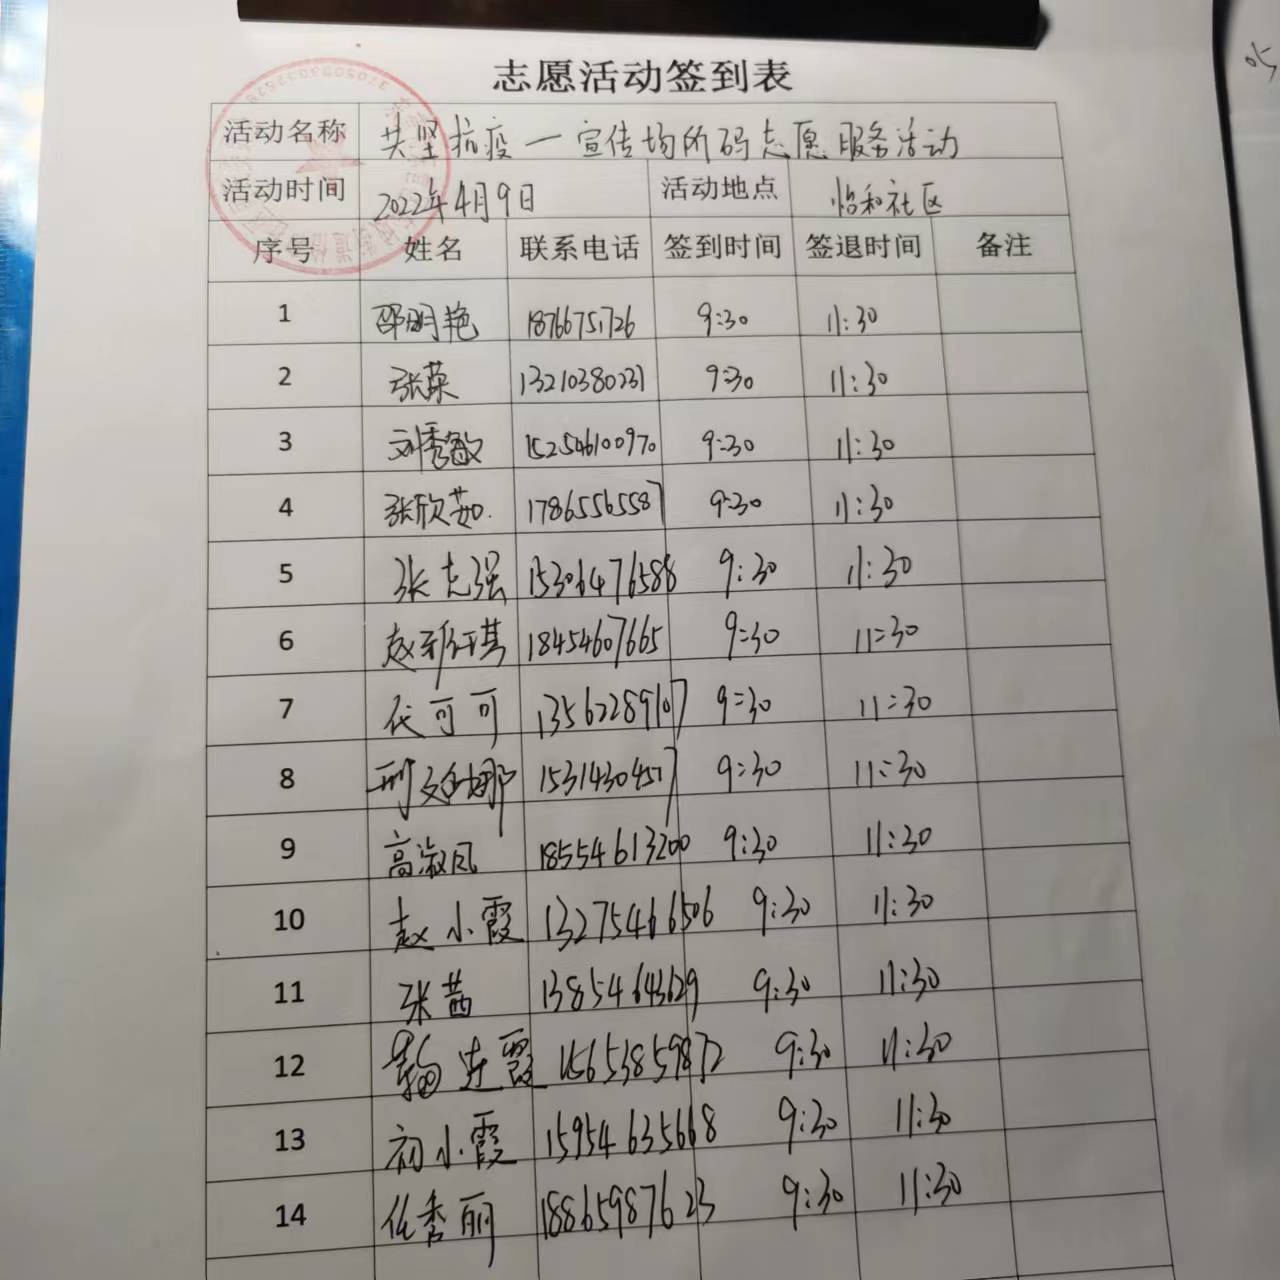 志愿活动签到表
活动名称 共坚抗疫一宣传场所码志愿服务活动
活动时间 2022年4月9日 活动地点 怡和社区
序号 姓名 联系电话 签到时间 签退时间 备注
1 邵明艳 18766751726 9:30 11:30
2 张荣 13210380231 9:30 11:30
3 刘秀敏 15254610970 9:30 11:30
4 张欣茹 17865565587 9:30 11:30
5 张志强 15306476588 9:30 11:30
6 赵雅琪 18454607665 9:30 11:30
7 代可可 13562289107 9:30 11:30
8 15314304517 9:30 11:30
9 高淑凤 18554613200 9:30 11:30
10 赵小霞 13275466506 9:30 11:30
11 张茜 13854643629 9:30 11:30
12 15653859872 9:30 11:30
13 初小霞 15954635668 9:30 11:30
14 任秀丽 18865987623 9:30 11:30